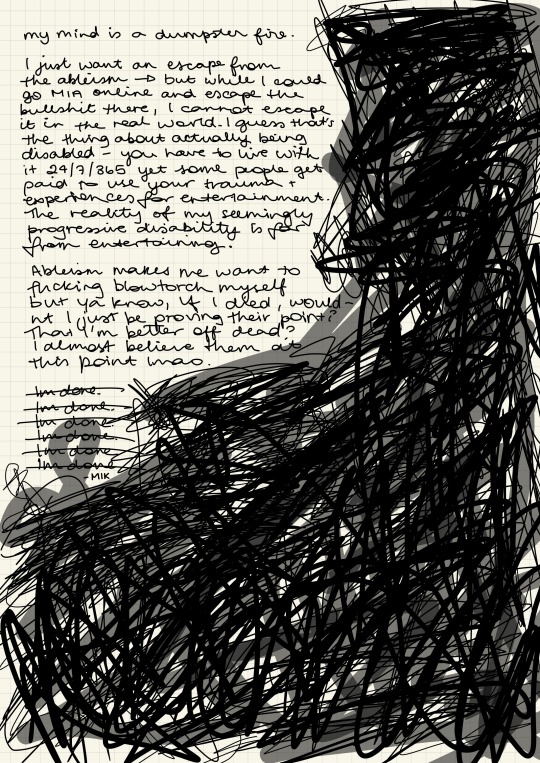 my mind is a dumpster fire.
I just want an escape from
the ableism → but while I could
go MIA online and escape the
bullshit there, I cannot escape
it in the real world. I guess that's
the thing about actually being
disabled - you have to live with
it 24/7/365 yet some people get
paid to use your trauma +
experiences for entertainment.
The reality of my seemingly
progressive disability is far
from entertaining.
Ableism makes me want to
fucking blowtorch myself
but ya know, if I died, would-
nt I just be proving their point?
That I'm better off dead?
I almost believe them at
this point lmao.
I'm done.
I'm done.
I'm done.
I'm done.
I'm done.
I'm done
-MIK